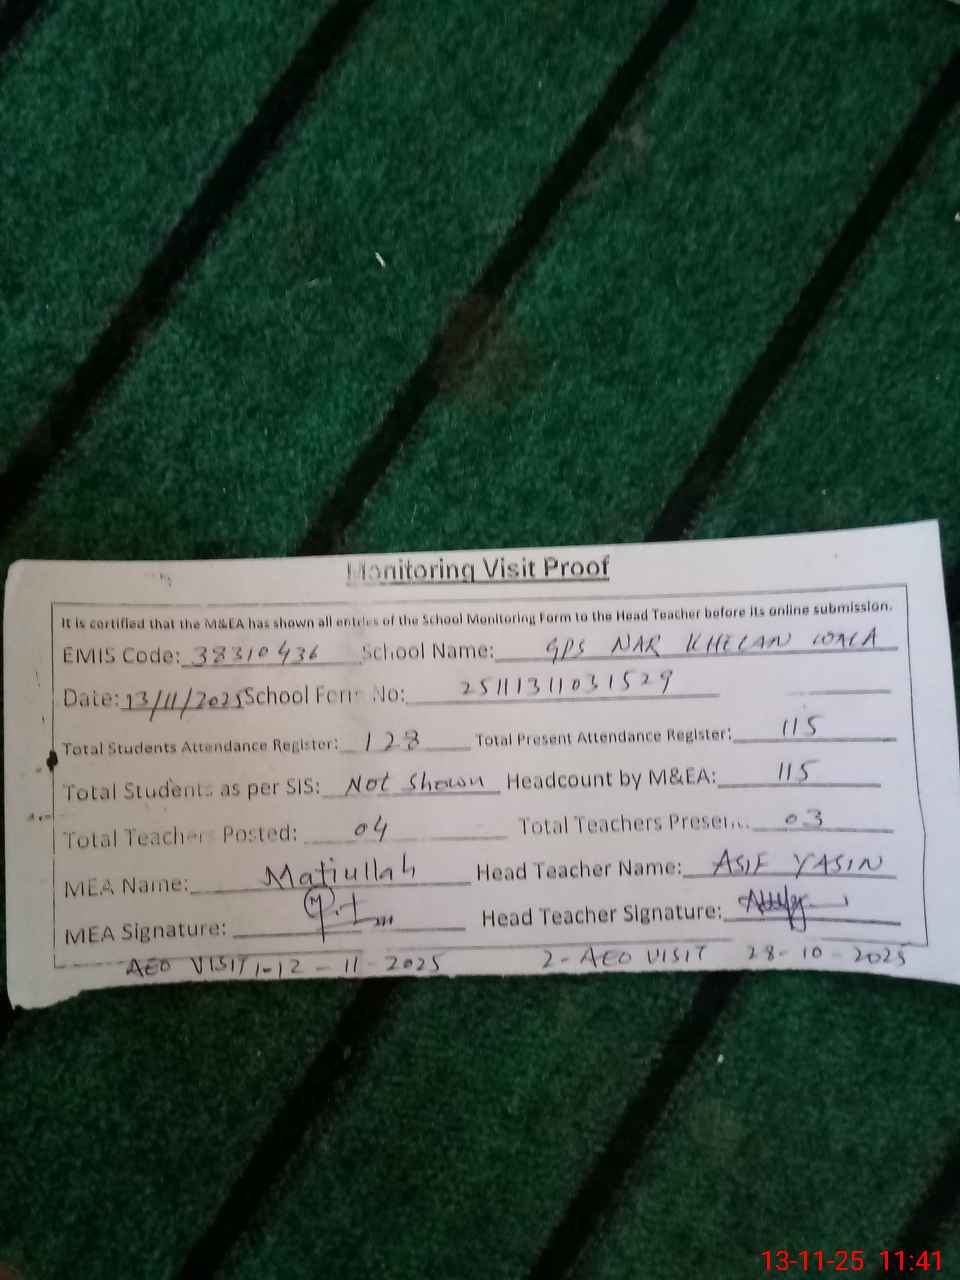 Monitoring Visit Proof
It is certified that the M&EA has shown all entries of the School Monitoring Form to the Head Teacher before its online submission.
EMIS Code: 38310436 School Name: GPS NAR KHELAN WALA
Date: 13/11/2025 School Form No: 25111311031529
Total Students Attendance Register: 128 Total Present Attendance Register: 115
Total Students as per SIS: Not Shown Headcount by M&EA: 115
Total Teachers Posted: 04 Total Teachers Present: 03
MEA Name: Matiullah Head Teacher Name: ASIF YASIN
MEA Signature: Head Teacher Signature:
AEO VISIT 1-12-11-2025 2-AEO VISIT 28-10-2025
13-11-25 11:41